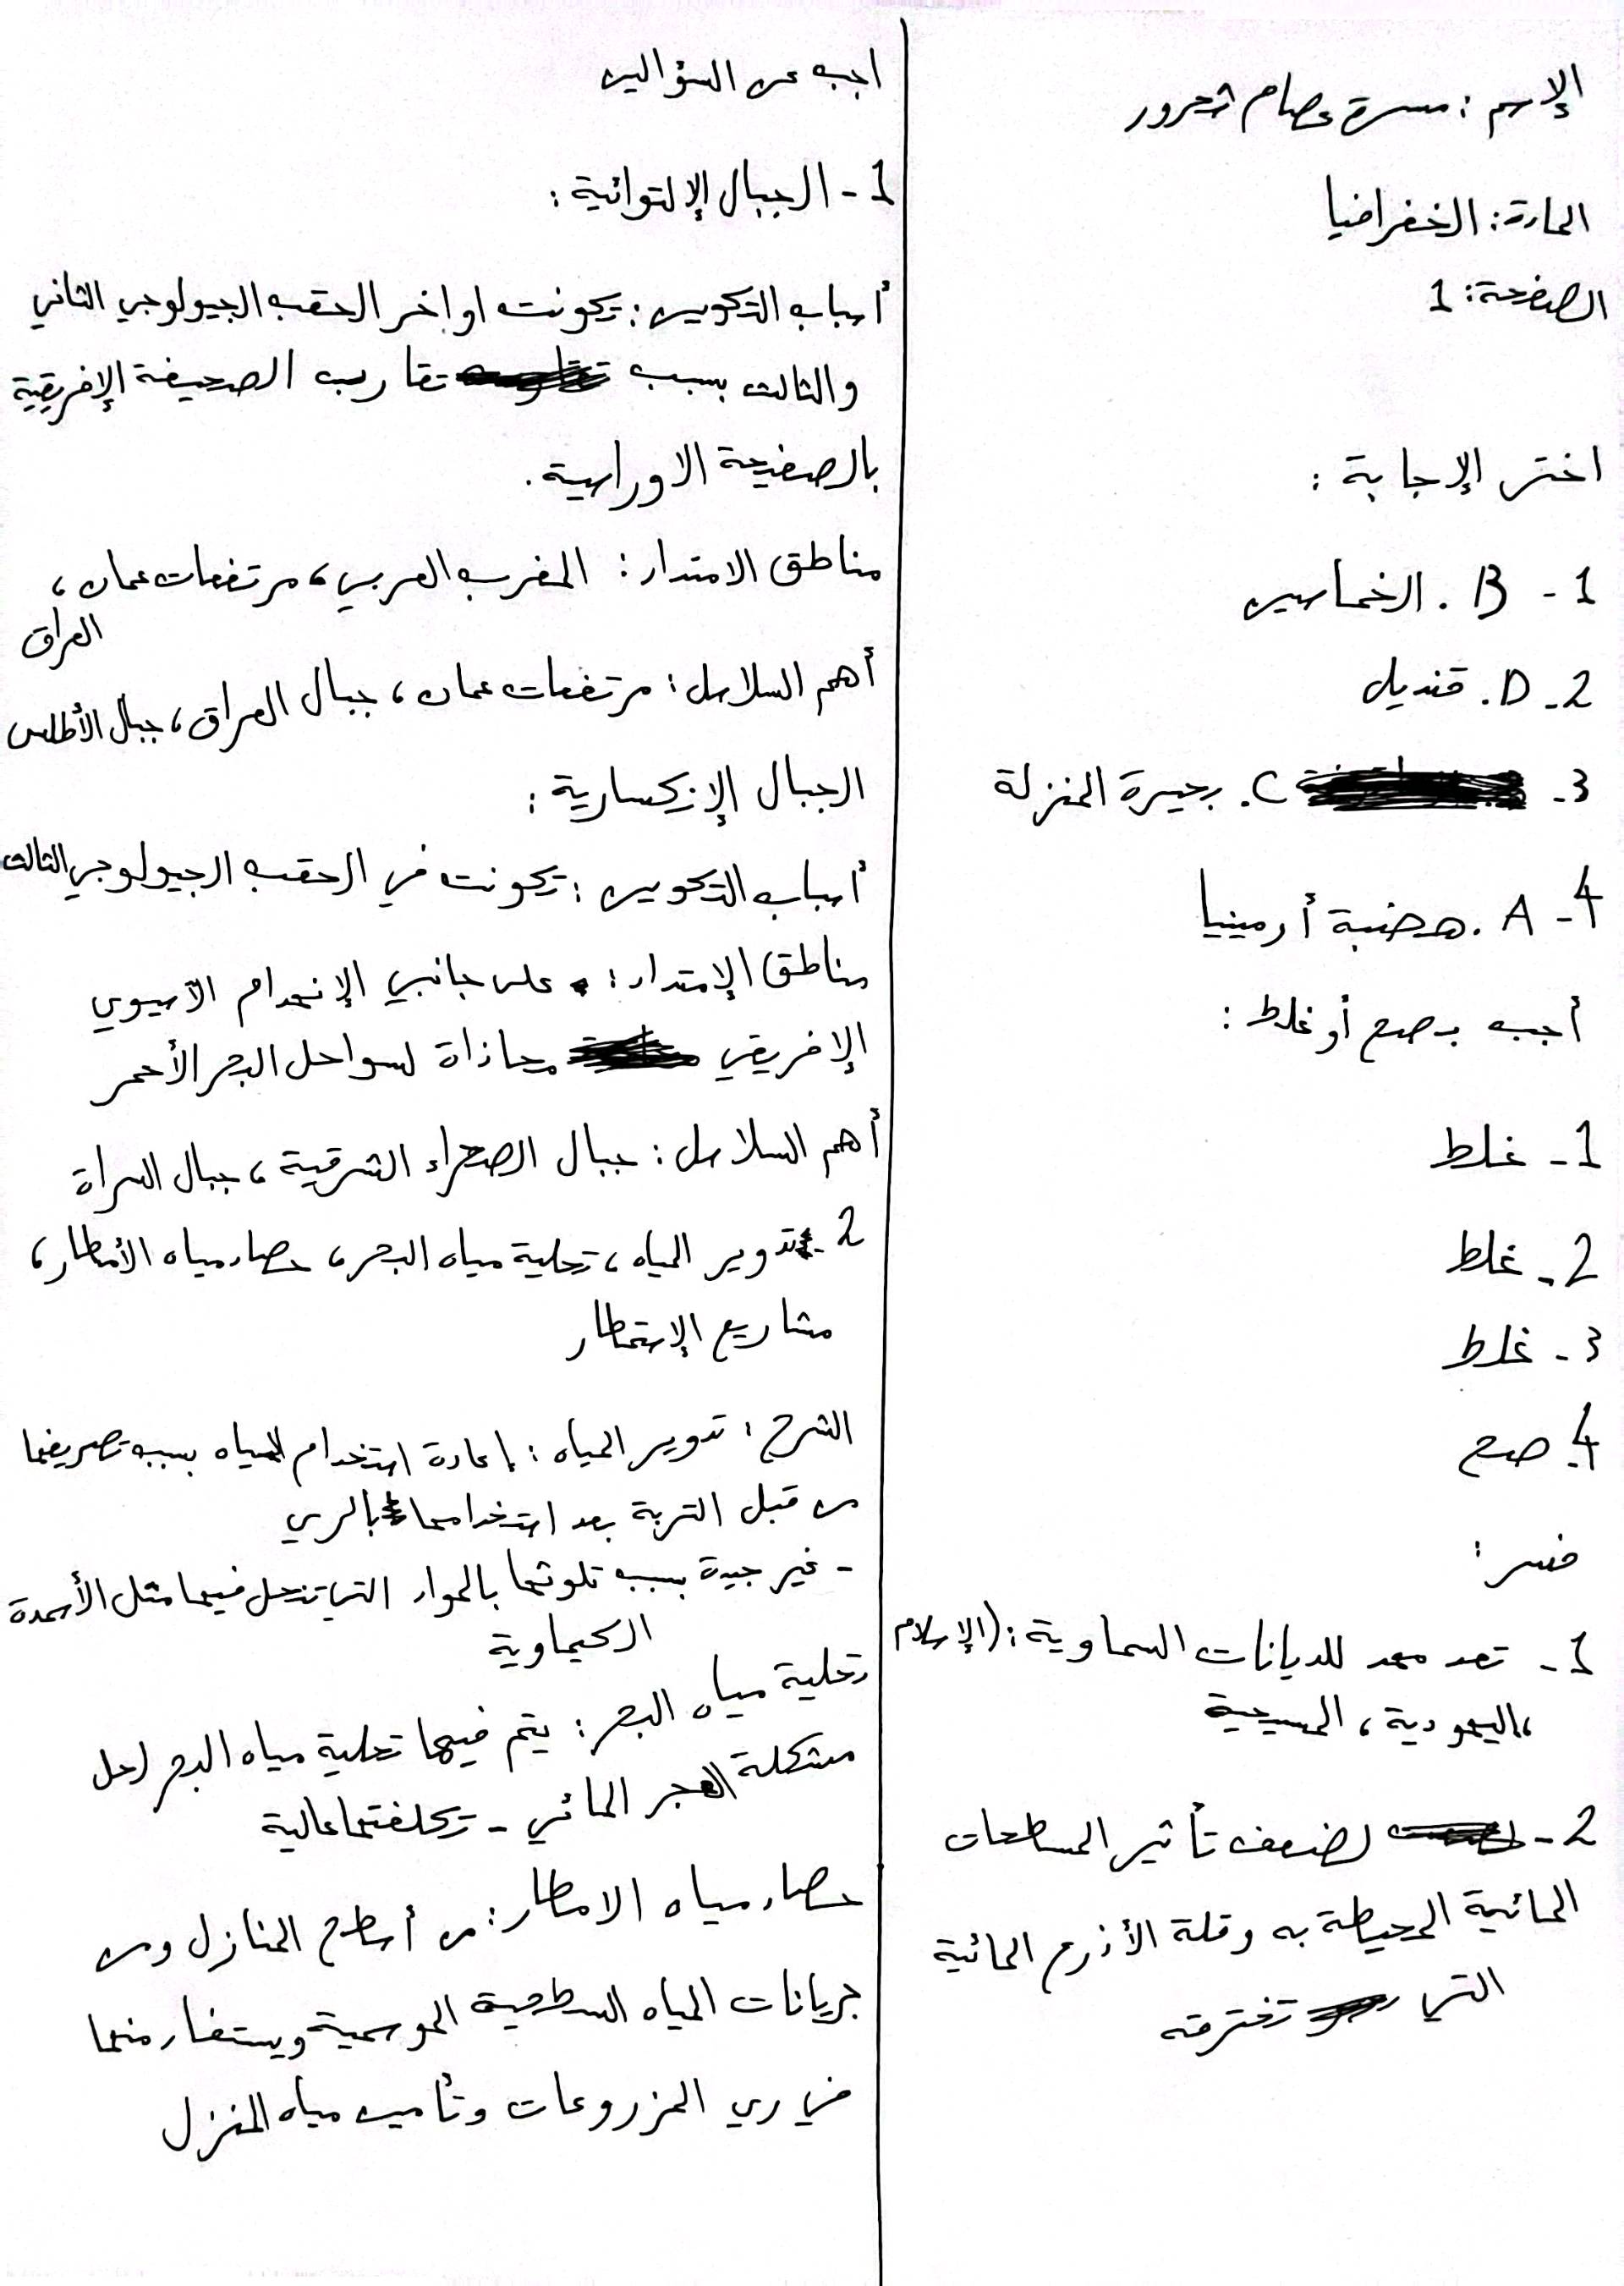 الإسم : مسرة عصام شحرور
المادة : الجغرافيا
الصفحة : 1
اختر الإجابة :
1 - B . الخماسين
2 - D . قنديل
3 - C . بحيرة المنزلة
4 - A . هضبة أرمينيا
أجب بصح أو غلط :
1 - غلط
2 - غلط
3 - غلط
4 - صح
فسر :
1 - تعد مهد للديانات السماوية : (الإسلام
، اليهودية ، المسيحية
2 - لضعف تأثير المسطحات
المائية المحيطة به وقلة الأذرع المائية
التي تخترقه
اجب عن السؤالين
1 - الجبال الإلتوائية :
أسباب التكوين : تكونت اواخر الحقب الجيولوجي الثاني
والثالث بسبب تقارب الصحيفة الإفريقية
بالصفيحة الاوراسية .
مناطق الامتدار : المغرب العربي ، مرتفعات عمان ،
العراق
أهم السلاسل : مرتفعات عمان ، جبال العراق ، جبال الأطلس
الجبال الإنكسارية :
أسباب التكوين : تكونت في الحقب الجيولوجي الثالث
مناطق الإمتداد : على جانبي الإنهدام الآسيوي
الإفريقي محاذاة لسواحل البحر الأحمر
أهم السلاسل : جبال الصحراء الشرقية ، جبال السراة
2 - تدوير المياه ، تحلية مياه البحر ، حصاد مياه الأمطار ،
مشاريع الإستمطار
الشرح : تدوير المياه : إعادة استخدام المياه بسبب تصريفها
من قبل التربة بعد استخدامها بالري
- غير جيدة بسبب تلوثها بالمواد التي تنحل فيها مثل الأسمدة
الكيماوية
تحلية مياه البحر : يتم فيها تحلية مياه البحر لحل
مشكلة العجز المائي - تكلفتها عالية
حصاد مياه الامطار : من أسطح المنازل ومن
جريانات المياه السطحية الموسمية ويستفاد منها
في ري المزروعات وتأمين مياه المنزل